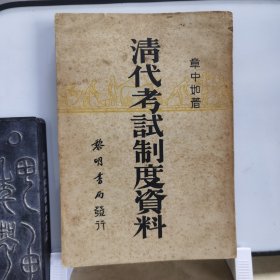 清代考試制度資料
章中如著
黎明書局發行